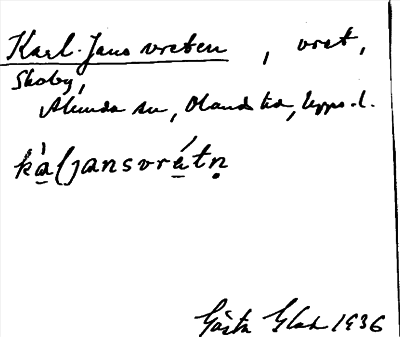 Karl-Jans vreten, vret,
Skoby,
Alunda sn, Olands hd, Upps. l.
kà̱ljansvrá̱tṇ
Gösta 1936